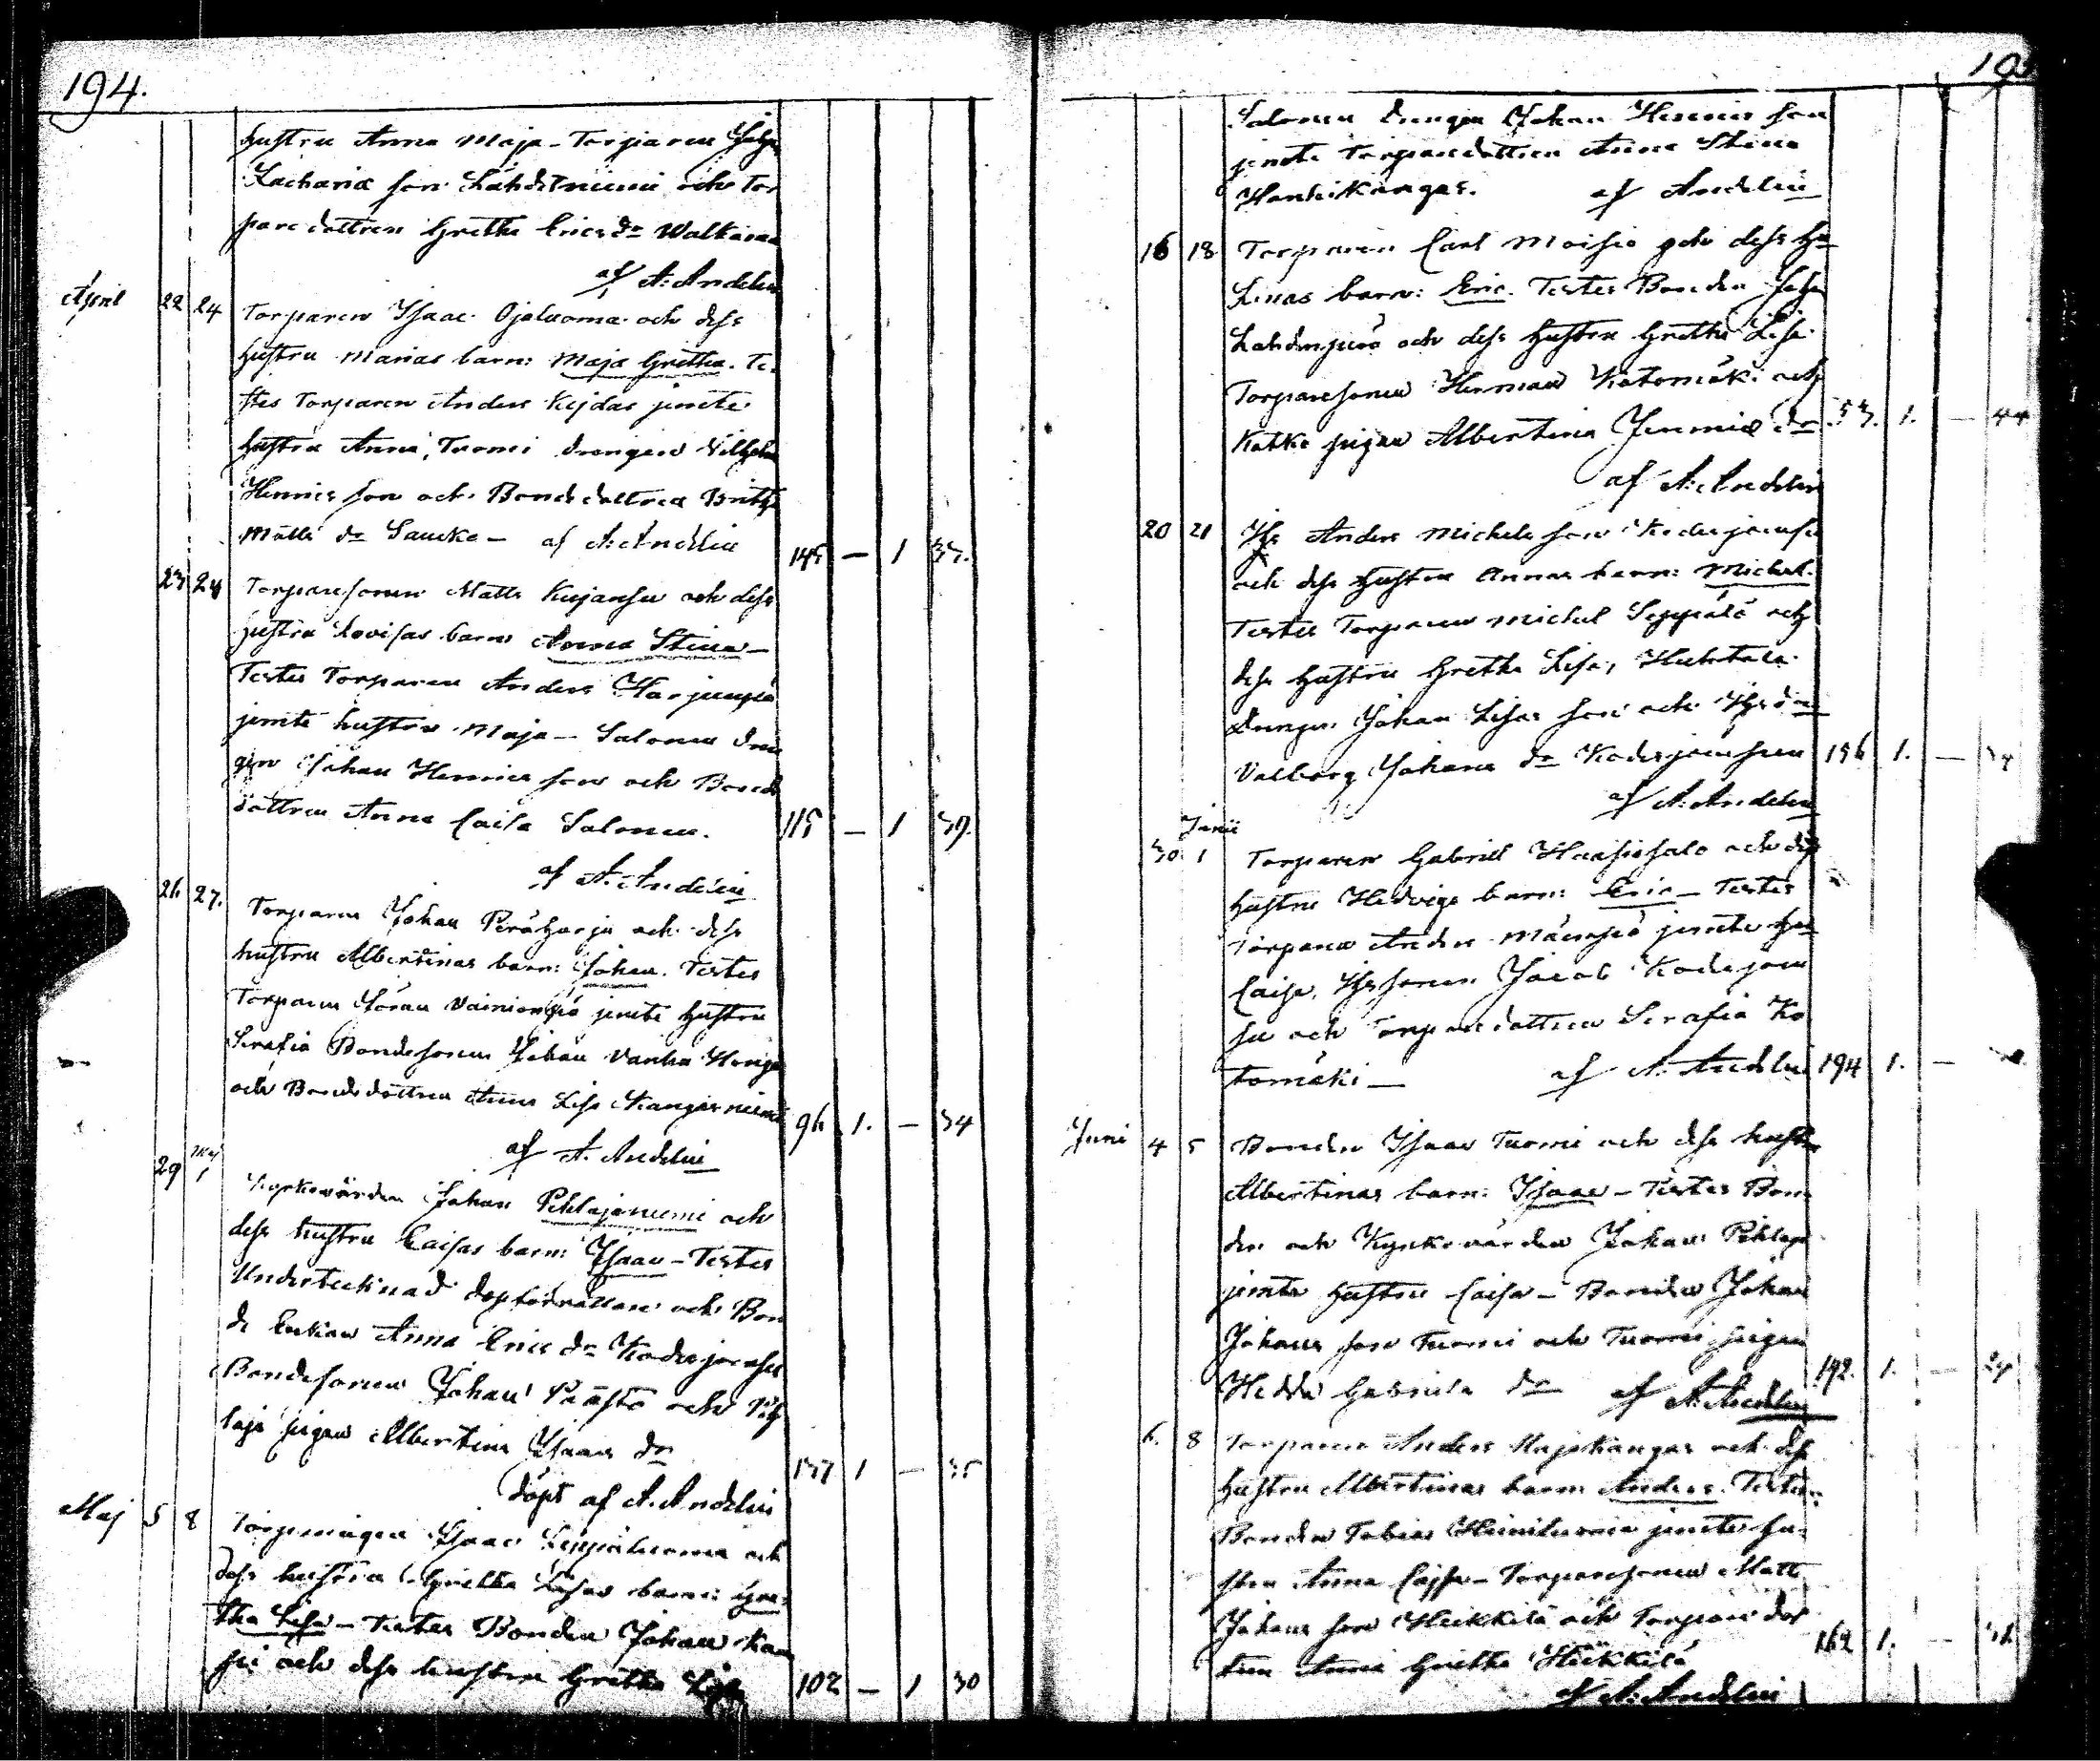 194.
hustru Anna Maja – Torparen Johan
Zachariæ son Lähdeniemi och Tor
paredottren Gretha Erics dr Walkama
af A: Andelin
April 22 24 Torparen Isaac Ojaluoma och dess
hustru Marias barn: Maja Gretha. Te-
stes Torparen Anders Kejdas jemte
hustru Anna, Tuomi drengen Vilhelm
Henrics son och Bondedottren Britha
Matts dr Saucko – af A: Andelin 145 – 1 33.
23 24 Torparesonen Matts Kujansu och dess
hustru Lovisas barn Anna Stina –
Testes Torparen Anders Harjunpä
jemte hustru Maja – Salonen dren
gen Johan Henrics son och Bonde
dottren Anna Caisa Salonen. 115 – 1 39.
af A. Andelin
26 27. Torparen Johan Peräharju och dess
hustru Albertinas barn: Johan. Testes
Torparen Göran Vainionpä jemte hustru
Serafia Bondesonen Johan Vanha Honga
och Bondedottren Anna Lisa Kangasniemi 96 1. – 34
af A. Andelin
29 Maj 1 Kyrkovärden Johan Pihlajaniemi och
dess hustru Caisas barn: Isaac – Testes
Undertecknad dopförrättare och Bon
de Enkan Anna Erics dr Koskujoensu
Bondesonen Johan Päästö och Pih
laja pigan Albertina Isaacs dr 137 1 – 35
döpt af A. Andelin
Maj 5 8 Torparen Isaac Leppäluoma och
dess hustru Gretha Lisas barn: Gre-
tha Lisa – Testes Bonden Johan
och dess hustru Gretha Lisa 102 – 1 30
Salonen drengen Johan Henrics son
jemte Torparedottren Anna Stina
Hanhikangas. af Andelin
16 18 Torparen Carl Moisio och dess hu
Lenas barn: Eric. Testes Bonden Johan
Lahdenperä och dess hustru Gretha Lisa
Torparesonen Herman Katomäki och
Katko pigan Albertina Jeremiæ dr 53. 1. – 44
af A: Andelin
20 21 Hr Anders Michels son Koskujoensu
och dess hustru Annas barn: Michel.
Testes Torparen Michel Seppälä och
dess hustru Gretha Lisa, Huhtala
drengen Johan Lisas son och
Valborg Johans dr Koskujoensuu 156 1. – 34
af A: Andelin
30 Junii 1 Torparen Gabriel Haapasalo och dess
hustru Hedvigs barn: Eric – Testes
Torparen Anders Mäenpä jemte hu
Caisa, Jacob Koskujoen
su och Torparedottren Serafia Ko
tomäki – af A. Andelin 194 1. –
Juni 4 5 Bonden Isaac Tuomi och dess hustru
Albertinas barn: Isaac – Testes Bon-
den och Kyrkovärden Johan Pihlaja
jemte hustru Caisa – Bonden Johan
Johans son Tuomi och Tuomi pigan
Hedda Gabriels dr af A: Andelin 192. 1. – 24
6. 8 Torparen Anders Hapakangas och dess
hustru Albertinas barn Anders. Testes:
Bonden Tobias Heiniluoma jemte hu-
stru Anna Cajsa – Torparesonen Matts
Johans son Heikkilä och Torpare dot
tren Anna Gretha Heikkilä 162 1. – 36
af A: Andelin